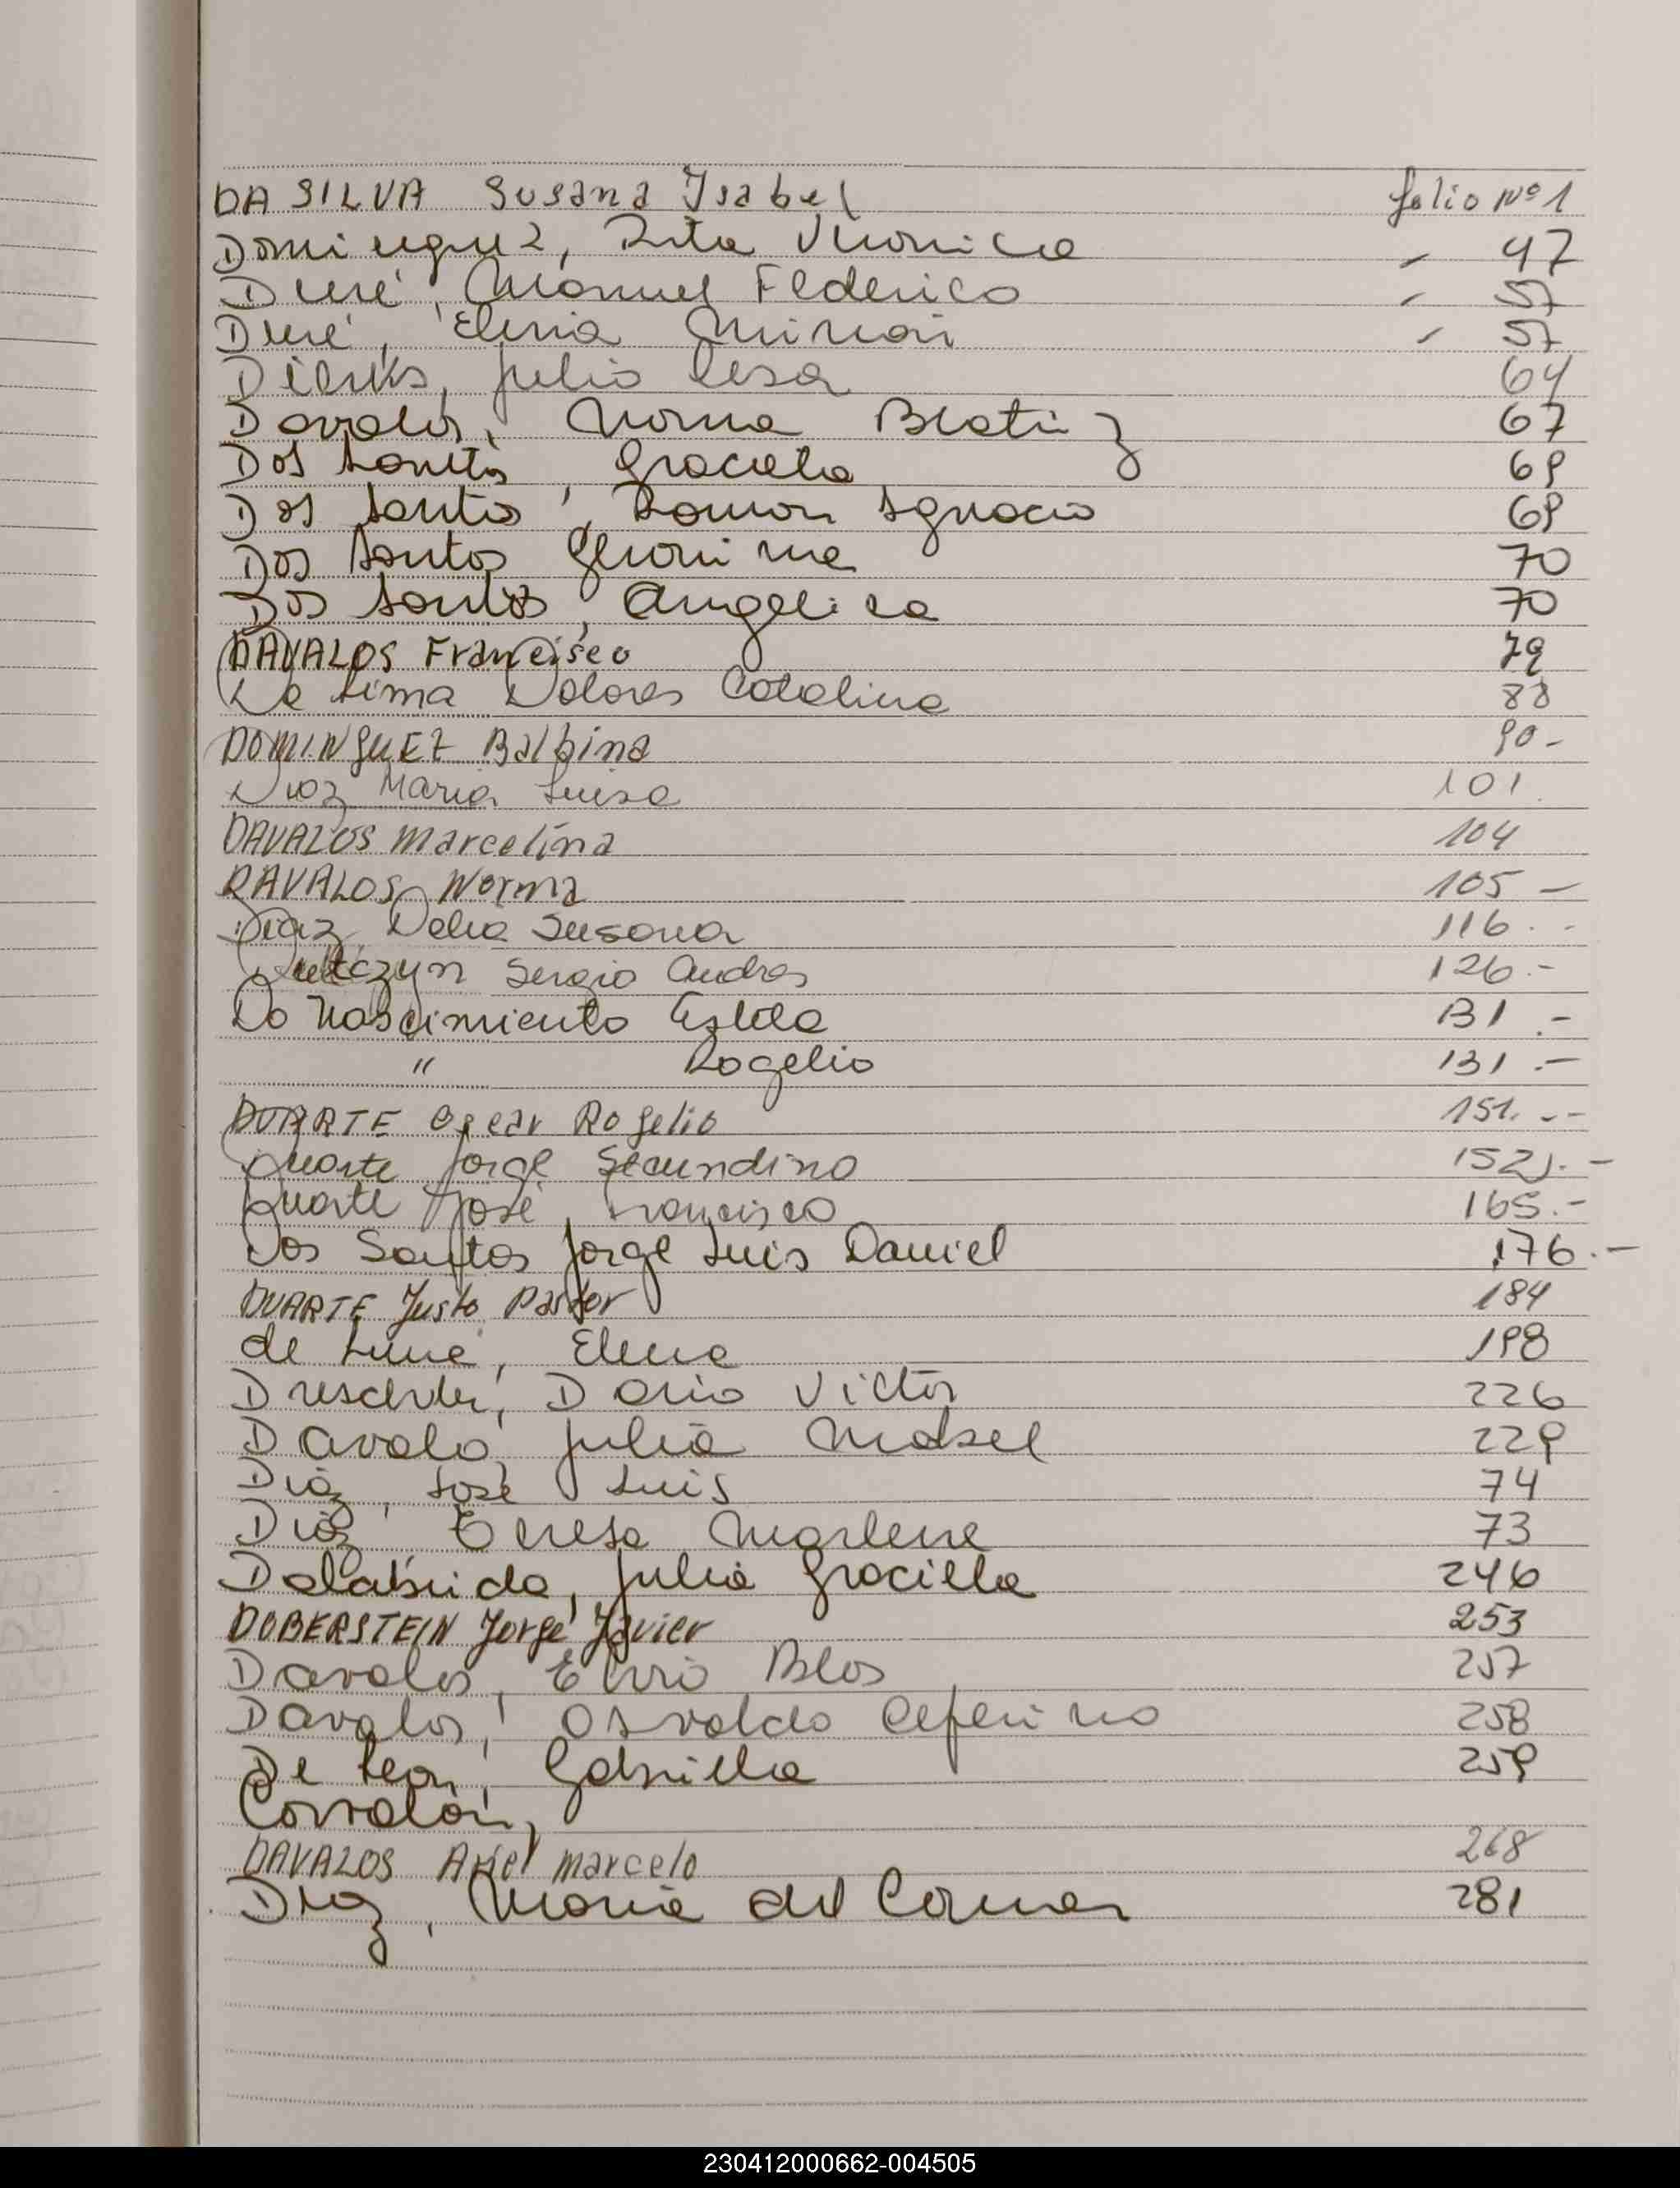 DA SILVA Susana Ysabel folio Nº 1
Dominguez, Rita Veronica " 47
Duré, Manuel Federico " 57
Duré, Elena Mirian " 57
Dierks, Julio Cesar 64
Davalos, Norma Beatriz 67
Dos Santos, Graciela 69
Dos Santos, Ramon Ignacio 69
Dos Santos Geronima 70
Dos Santos, Angelica 70
DAVALOS Francisco 79
De Lima Dolores Catalina 88
DOMINGUEZ Balbina 90-
Diaz Maria Luisa 101.
DAVALOS Marcelina 104
DAVALOS Norma 105 -
Diaz Delia Susana 116. -
Sergio Andres 126.-
Do Nascimiento Estela 131 .-
" Rogelio 131 .-
DUARTE Oscar Rogelio 151. --
Duarte Jorge Secundino 152 .-
Duarte José, Francisco 165.-
Dos Santos Jorge Luis Daniel 176.-
DUARTE Justo Pastor 184
de Lima, Elena 198
Drescher, Dario Victor 226
Davalo Julia Mabel 229
Diaz, José Luis 74
Diaz, Teresa Marlene 73
Dalabrida, Julia Graciela 246
DOBERSTEIN Jorge Javier 253
Davalos, Elvio Blas 257
Davalos, Osvaldo Ceferino 258
De Leon, Gabriela 259
Corralón,
DAVALOS Ariel Marcelo 268
Diaz, Maria del Carmen 281
230412000662-004505